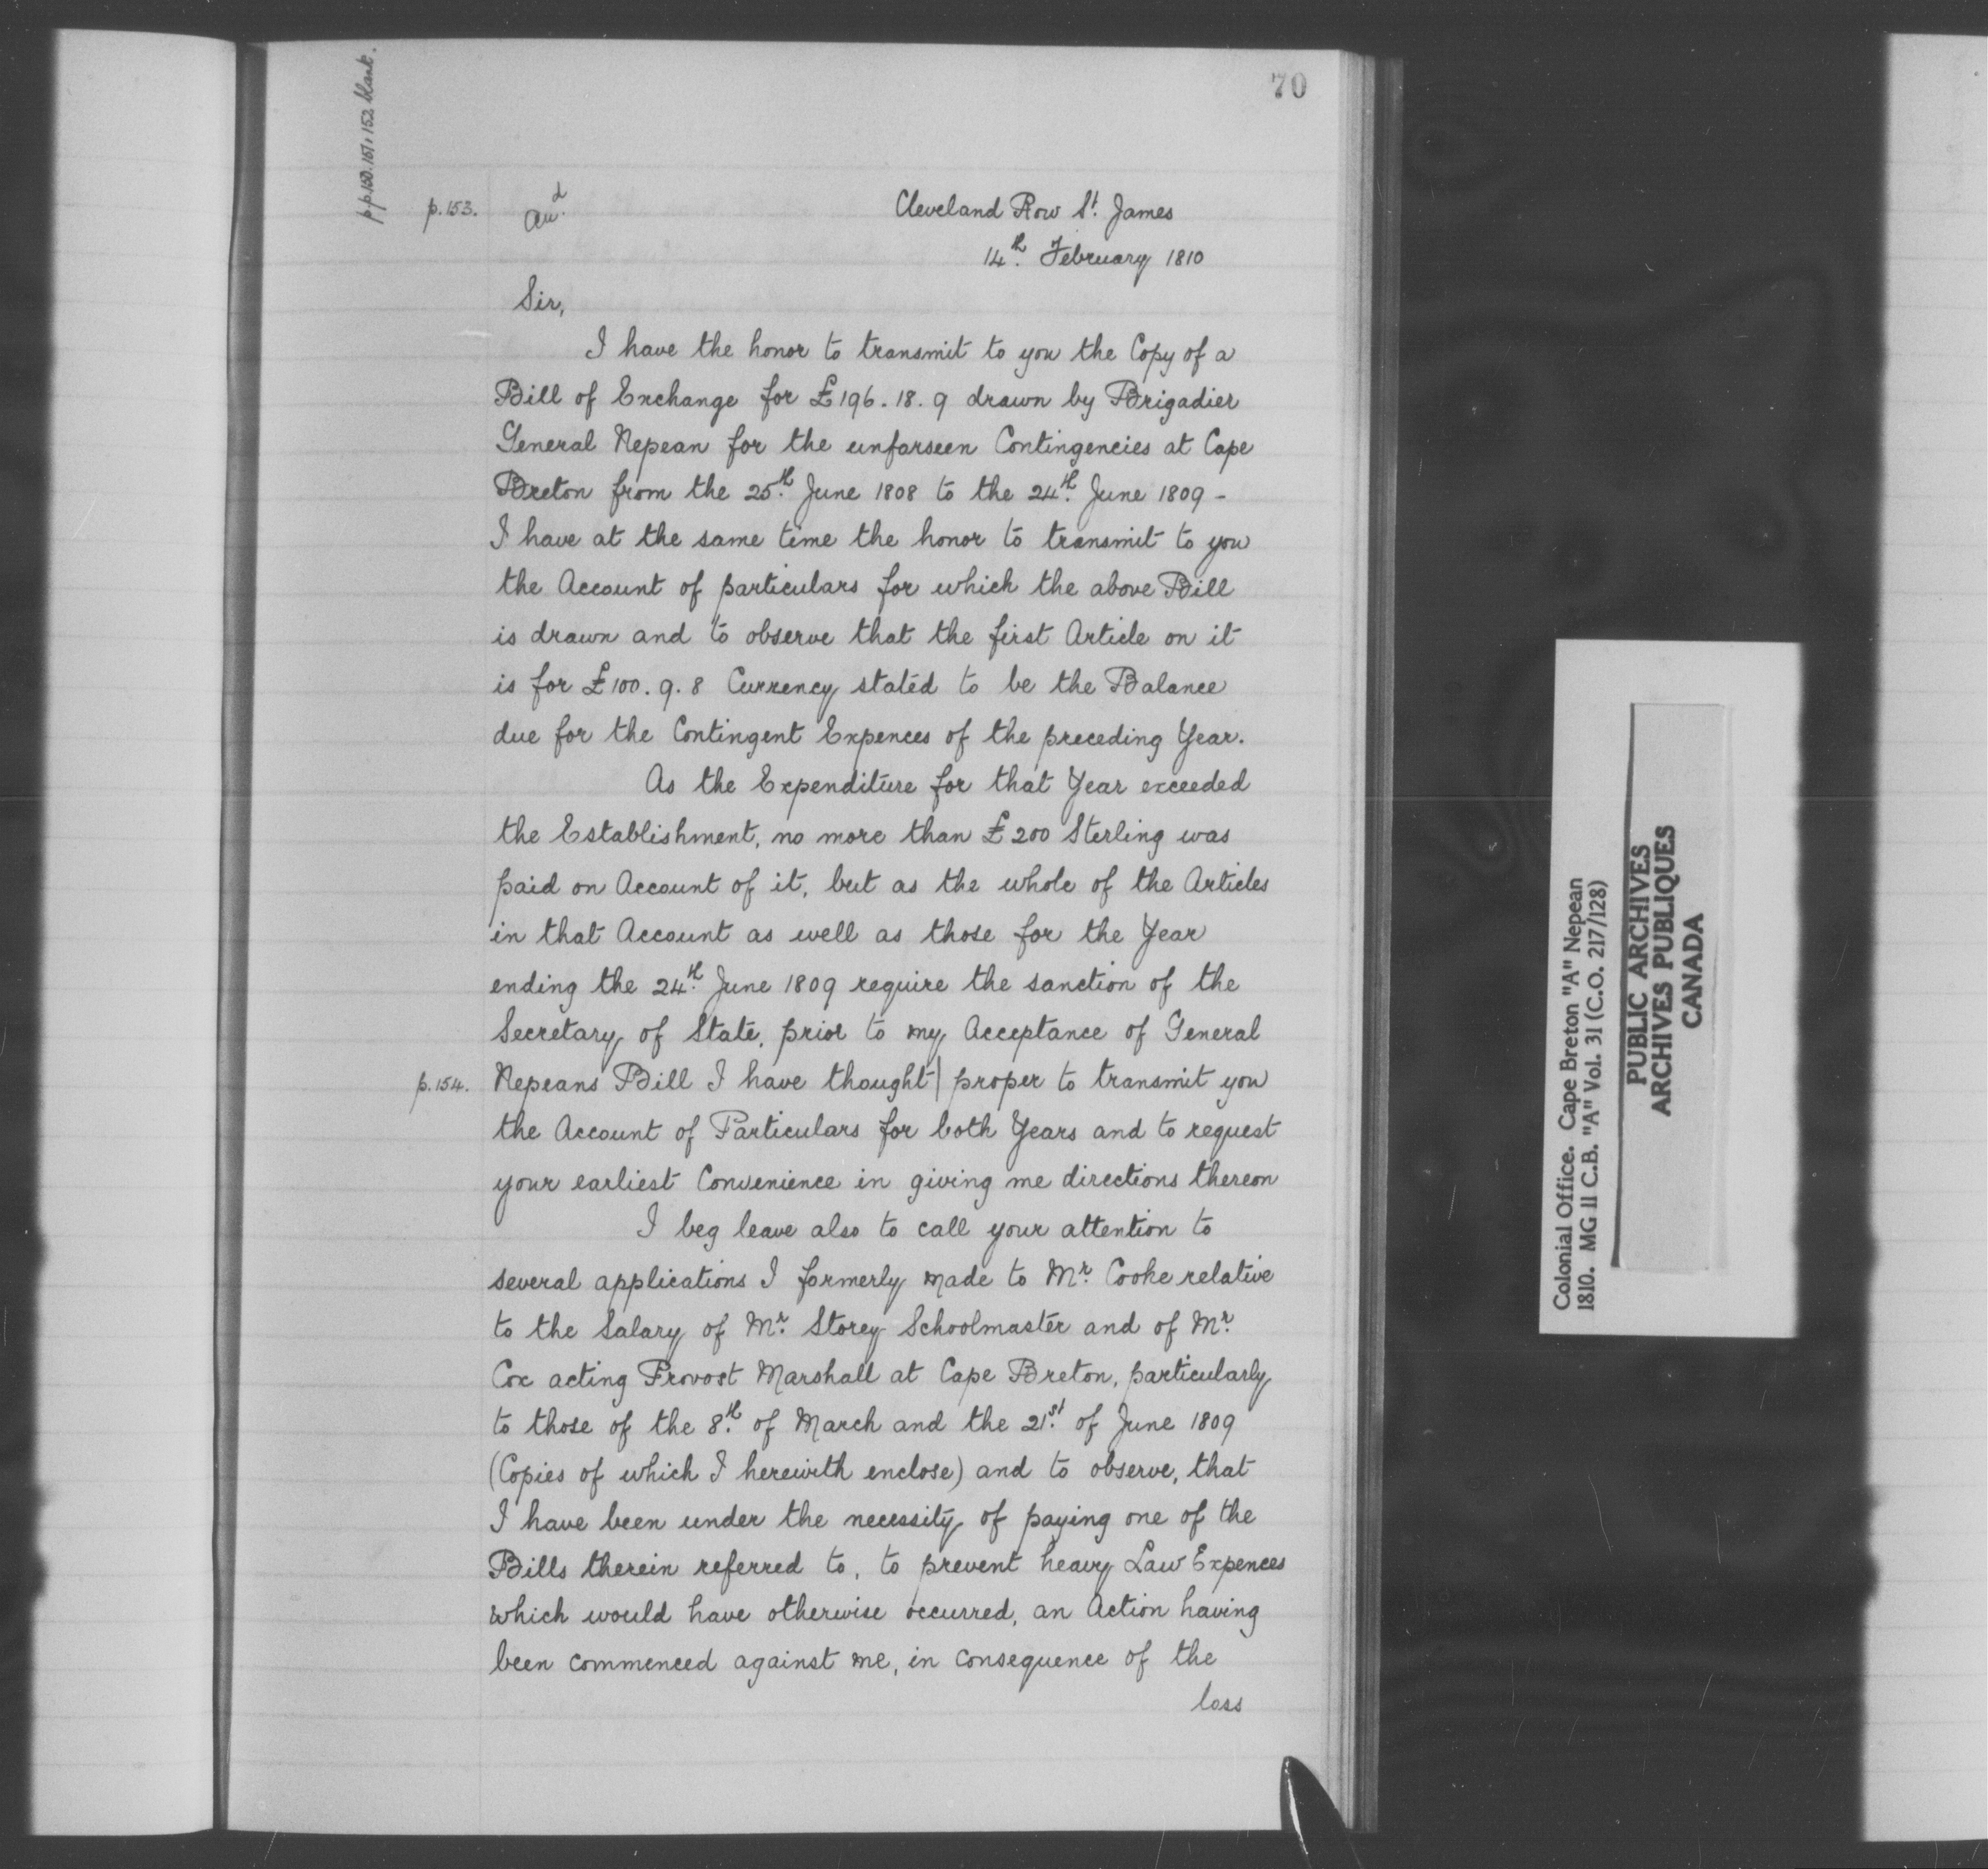 70
pp. 150, 151, 152 blank.
p. 153.
Cleveland Row St. James
14th. February 1810
Sir,
I have the honor to transmit to you the Copy of a
Bill of Exchange for £196. 18. 9 drawn by Brigadier
General Nepean for the unforseen Contingencies at Cape
Breton from the 25th. June 1808 to the 24th. June 1809 -
I have at the same time the honor to transmit to you
the Account of particulars for which the above Bill
is drawn and to observe that the first Article on it
is for £100. 9. 8 Currency stated to be the Balance
due for the Contingent Expences of the preceding Year.
As the Expenditure for that Year exceeded
the Establishment, no more than £200 Sterling was
paid on Account of it, but as the whole of the Articles
in that Account as well as those for the Year
ending the 24th. June 1809 require the sanction of the
Secretary of State, prior to my Acceptance of General
p. 154. Nepeans Bill I have thought| proper to transmit you
the Account of Particulars for both Years and to request
your earliest Convenience in giving me directions thereon
I beg leave also to call your attention to
several applications I formerly made to Mr. Cooke relative
to the Salary of Mr. Storey Schoolmaster and of Mr.
Cox acting Provost Marshall at Cape Breton, particularly
to those of the 8th. of March and the 21st. of June 1809
(Copies of which I herewith enclose) and to observe, that
I have been under the necessity of paying one of the
Bills therein referred to, to prevent heavy Law Expences
which would have otherwise occurred, an Action having
been commenced against me, in consequence of the
loss
Colonial Office. Cape Breton "A" Nepean
1810. MG 11 C.B. "A" Vol. 31 (C.O. 217/128)
PUBLIC ARCHIVES
ARCHIVES PUBLIQUES
CANADA